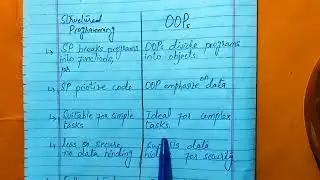 Structured OOPs
Programming
SP breaks programs OOPs divide programs
into functions, into objects.
or
SP priotive code OOP emphasize on data
Suitable for simple Ideal for complex
tasks tasks.
less secure, data
no data hiding for security